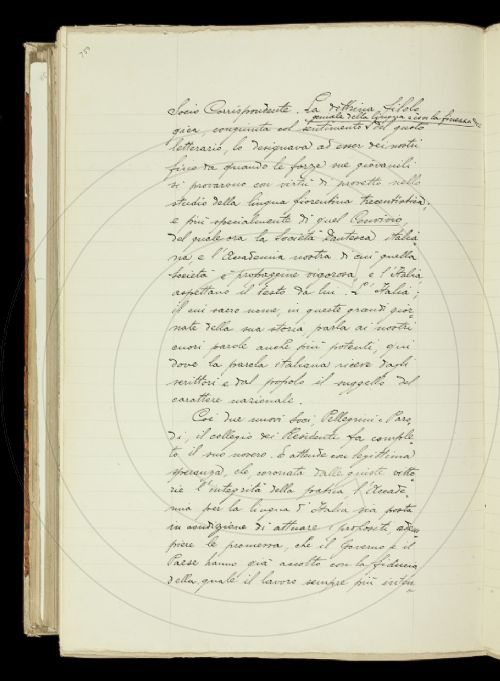 Socio Corrispondente. La dottrina filolo
geniale della lingua e con la finezza del
gica, congiunta col sentimento del gusto
letterario, lo designava ad esser dei nostri
fino da quando le forze sue giovanili
si provarono con virtù di provetto nello
studio della lingua fiorentina trecentistica;
e più specialmente di quel Convivio,
del quale ora la Società Dantesca italia
na e l'Accademia nostra di cui quella
società è propaggine vigorosa, e l'Italia
aspettano il testo da lui. L'Italia;
il cui sacro nome, in queste grandi gior
nate della sua storia parla ai nostri
cuori parole anche più potenti, qui
dove la parola italiana riceve dagli
scrittori e dal popolo il suggello del
carattere nazionale.
Coi due nuovi Soci, Pellegrini e Paro
di, il collegio dei Residenti fa comple
to il suo novero. E attende con legittima
speranza, che, coronata dalle giuste vitto
rie l'integrità della patria l'Accade
mia per la lingua d'Italia sia posta
in condizione di attuare i propositi, adem
piere le promesse, che il Governo e il
Paese hanno già accolto con la fiducia
della quale il lavoro sempre più inten